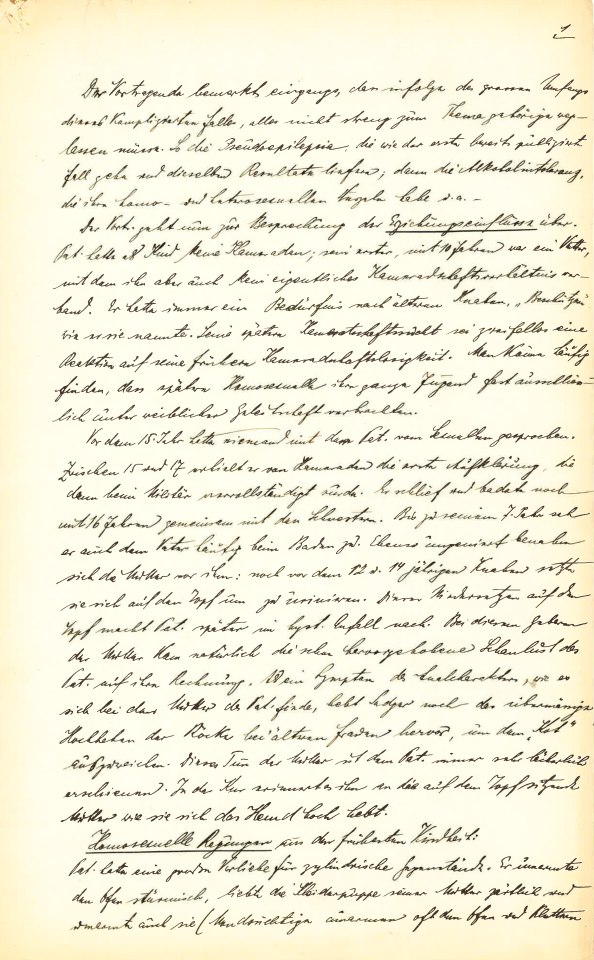 1
Der Vortragende bemerkt eingangs, dass infolge des grossen Umfangs
dieses komplizierten Falles, alles nicht streng zum Thema gehörige weg-
lassen müsse. So die Pseudoepilepsie, die wie der erste bereits publizierte
Fall gehe und dieselben Resultate liefere; dann die Alkoholintoleranz,
die ihre homo- und heterosexuellen Wurzeln habe u.a. –
Der Vortr. geht nun zur Besprechung der Erziehungseinflüsse über.
Pat. hatte als Kind keine Kameraden; sein erster, mit 10 Jahren war ein Vetter,
mit dem ihn aber auch kein eigentliches Kameradschaftsverhältnis ver-
band. Er hatte immer ein Bedürfnis nach älteren Knaben, „Beschützern
wie er sie nannte. Seine spätere sei zweifellos eine
Reaktion auf seine frühere Kameradschaftslosigkeit. Man könne häufig
finden, dass spätere Homosexuelle ihre ganze Jugend fast ausschliess-
lich unter weiblicher Gesellschaft verbrachten.
Vor dem 15. Jahr hatte niemand mit dem Pat. vom Sexuellen gesprochen.
Zwischen 15 und 17 erhielt er von Kameraden die erste Aufklärung, die
dann beim Militär vervollständigt wurde. Er schlief und badete noch
mit 16 Jahren gemeinsam mit den Schwestern. Bis zu seinem 7. Jahr sah
er auch dem Vater häufig beim Baden zu. Ebenso ungeniert benahm
sich die Mutter vor ihm: noch vor dem 12 u. 14 jährigen Knaben setzte
sie sich auf den Topf um zu urinieren. Dieses Niedersetzen auf den
Topf macht Pat. später im hyst. Anfall nach. Bei diesem Gebaren
der Mutter kam natürlich die schon hervorgehobene Schaulust des
Pat. auf ihre Rechnung. Als ein Symptom des Analcharakters, wie es
sich bei der Mutter des Pat. finde, hebt Sadger noch das übermässige
Hochheben der Röcke bei älteren Frauen hervor, um dem „Kot“
auszuweichen. Dieses Tun der Mutter ist dem Pat. immer sehr lächerlich
erschienen. In der Kur erinnerte er sich an die auf dem Topf sitzende
Mutter wie sie sich das Hemd hoch hebt.
Homosexuelle Regungen aus der frühesten Kindheit:
Pat. hatte eine grosse Vorliebe für zylindrische Gegenstände. Er umarmte
den Ofen stürmisch, liebte die Kleiderpuppe seiner Mutter zärtlich und
umarmte auch sie (Mondsüchtige umarmen oft den Ofen und klettern